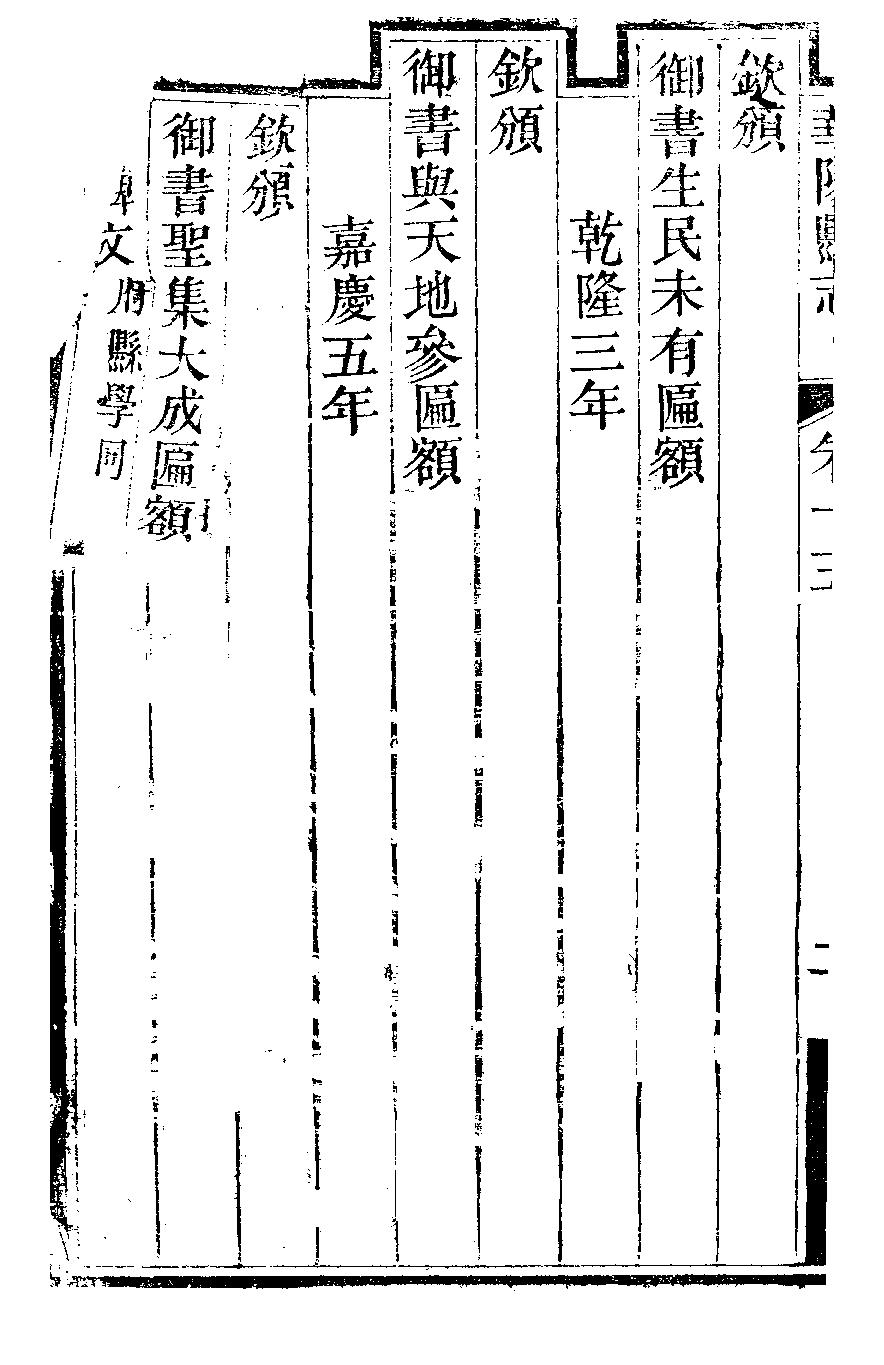 華陽縣志
卷十三
二
欽頒
御書生民未有匾額
乾隆三年
欽頒
御書與天地參匾額
嘉慶五年
欽頒
御書聖集大成匾額
文府縣學同